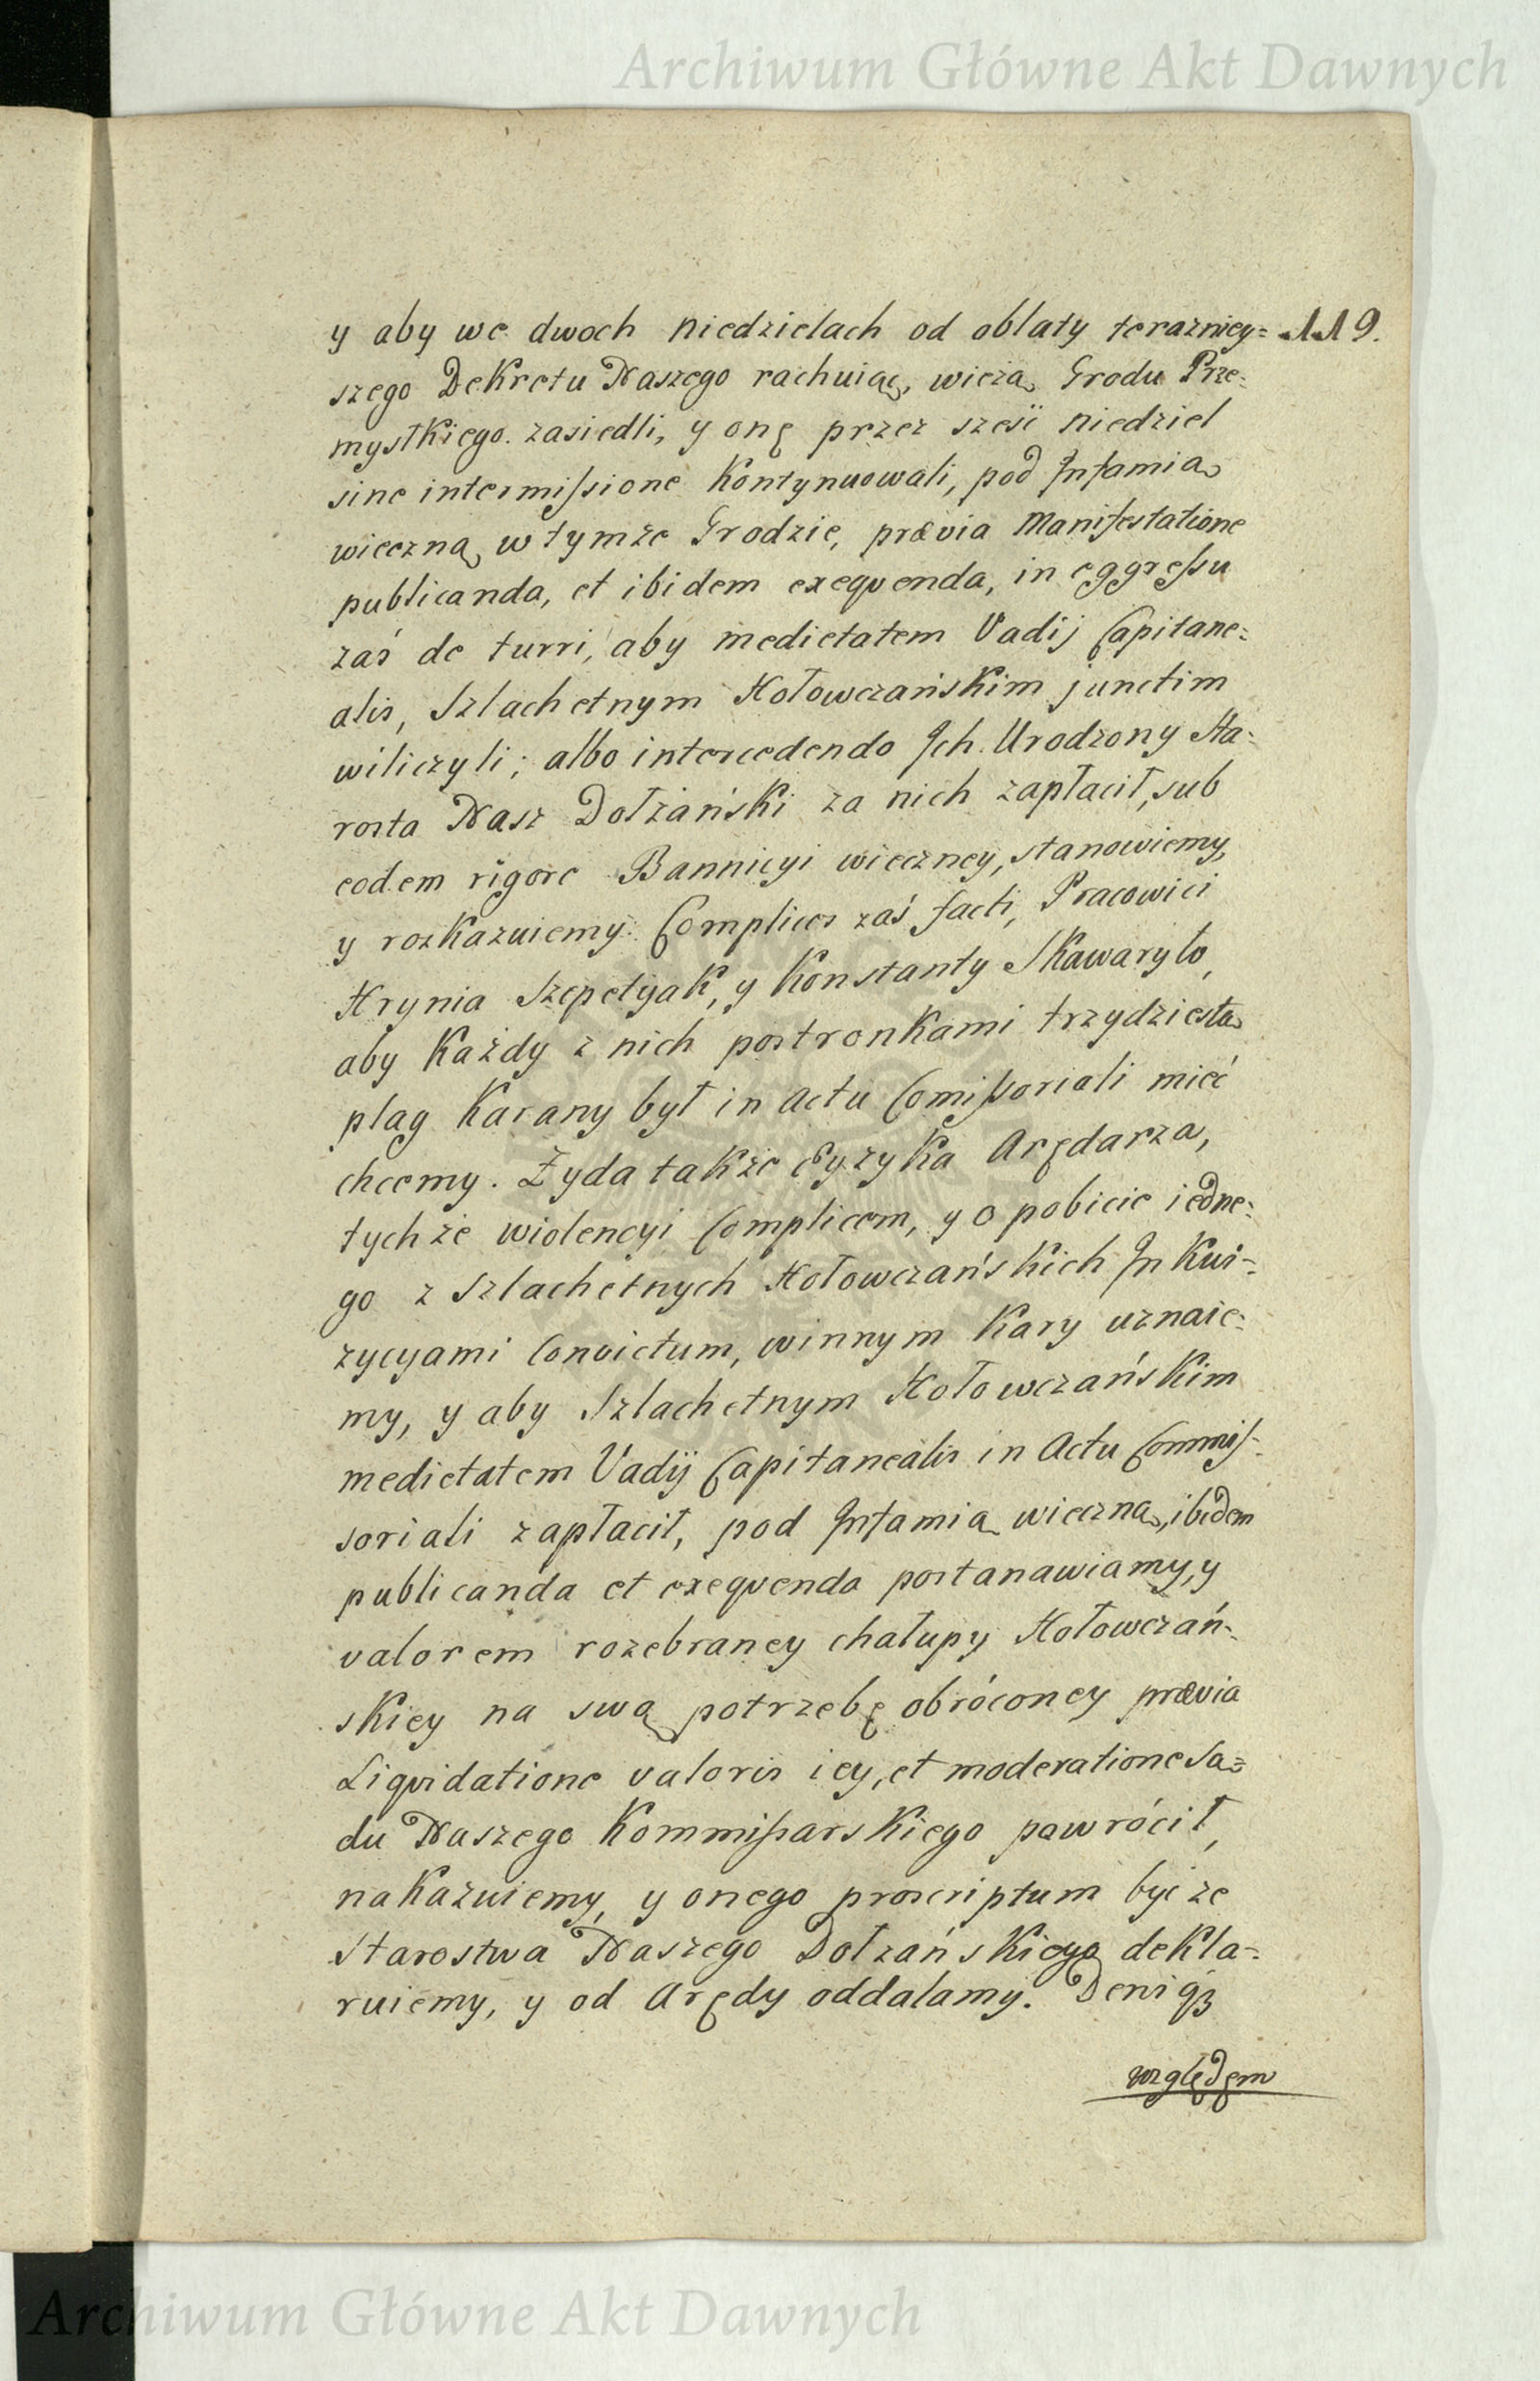 Archiwum Główne Akt Dawnych
119.
y aby we dwoch niedzielach od oblaty terazniey=
szego Dekretu Naszego rachuiąc, wieżą Grodu Prze=
mystkiego. zasiedli, y onę przez sześć niedziel
sine intermissione Kontynuowali, pod Infamią
wieczną w tymże Grodzie, prævia Manifestatione
publicanda, et ibidem exeqvenda, in eggressu
zaś de turri, aby medietatem Vadij Capitane=
alis, Szlachetnym Hołowczańskim junctim
wiliczyli; albo intercedendo Ich. Urodzony Sta=
rosta Nasz Dołżański za nich zapłacił, sub
eodem rigore Bannicyi wieczney, stanowiemy,
y rozkazuiemy. Complices zaś facti, Pracowici
Hrynia Szepetyak, y Konstanty Skawaryło,
aby Każdy z nich postronkami trzydziestą
plag Karany był in Actu Comissoriali mieć
chcemy. Żyda także Ayzyka Arędarza,
tychże wiolencyi Complicem, y o pobicie iedne=
go z Szlachetnych Hołowczańskich InKwi=
zycyami Convictum, winnym Kary uznaie=
my, y aby Szlachetnym Hołowczańskim
medietatem Vadij Capitanealis in Actu Commis=
soriali zapłacił, pod Infamią wieczną, ibidem
publicanda et exeqvenda postanawiamy, y
valorem rozebraney chałupy Hołowczań=
skiey na swą potrzebę obróconey prævia
Liqvidatione valoris iey, et moderatione Są=
du Naszego Kommissarskiego powrócił,
nakazuiemy, y onego proscriptum być ze
Starostwa Naszego Dołzańskiego dekla=
ruiemy, y od Arędy oddalamy. Deniqꝫ
względem
Archiwum Główne Akt Dawnych